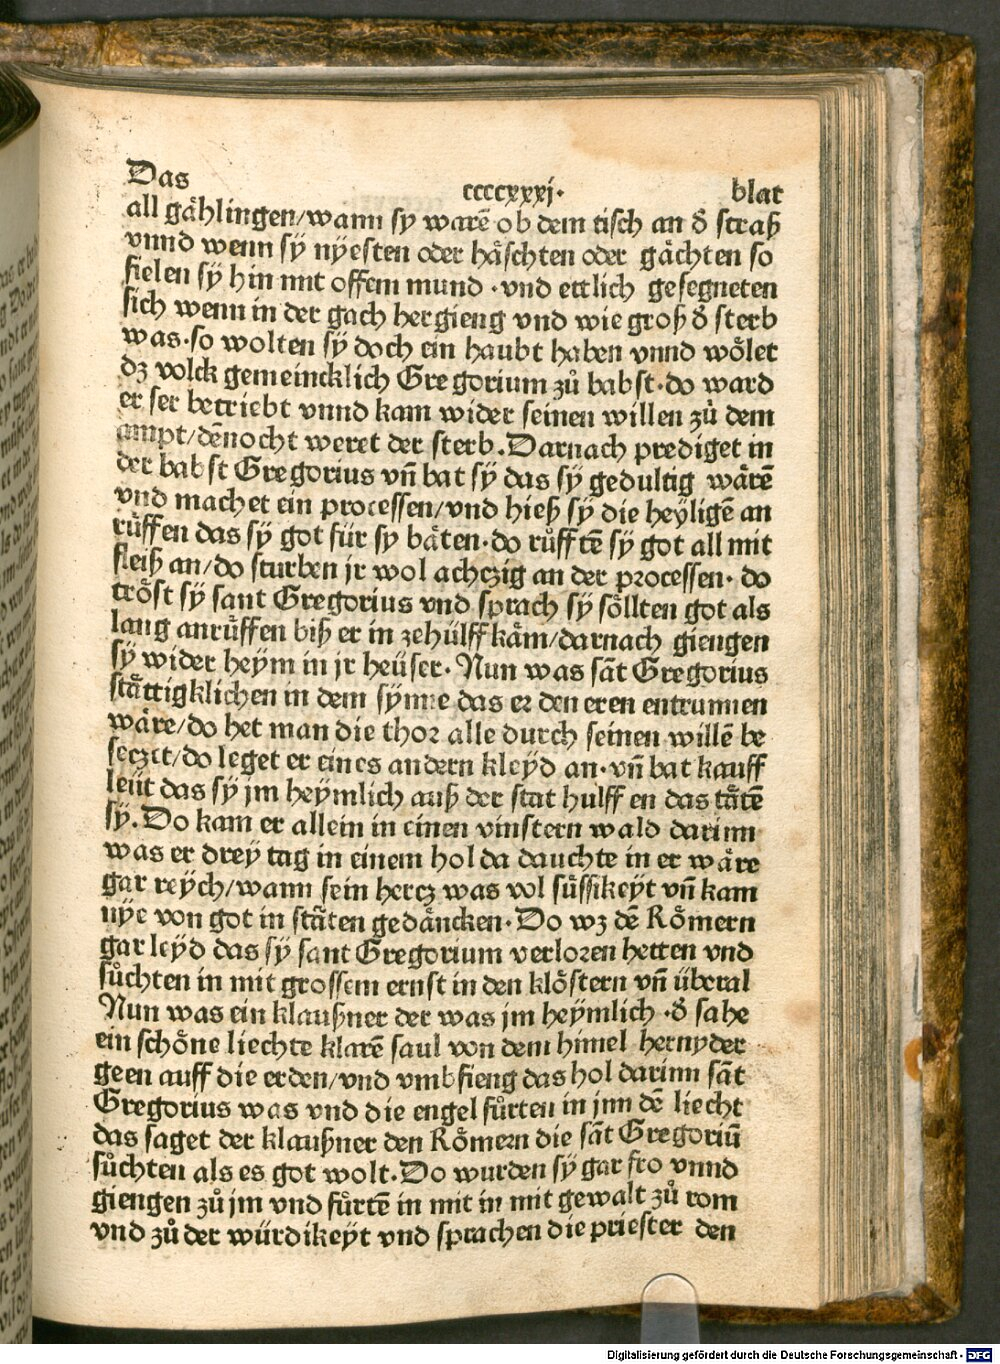 Das ccccxxxj. blat
all gåhlingen/wann sy warē ob dem tisch an d̕ straß
vnnd wenn sÿ nÿesten oder håschten oder gåchten so
fielen sÿ hin mit offem mund ·vnd ettlich gesegneten
sich wenn in der gach hergieng vnd wie groß d̕ sterb
was·so wolten sÿ doch ein haubt haben vnnd wőlet
dz volck gemeincklich Gregorium zů babst·do ward
er ser betriebt vnnd kam wider seinen willen zů dem
ampt/dēnocht weret der sterb.Darnach prediget in
der babst Gregorius vn̄ bat sÿ das sÿ gedultig wårē
vnd machet ein processen/vnd hieß sÿ die heÿligē an
růffen das sÿ got für sy båten·do růfftē sÿ got all mit
fleiß an/do sturben jr wol achczig an der processen· do
tröst sÿ sant Gregorius vnd sprach sÿ söllten got als
lang anrůffen biß er in zehülff kåm/darnach giengen
sÿ wider heÿm in jr heüser· Nun was sāt Gregorius
ståttigklichen in dem sÿnne das er den eren entrunnen
wåre/do het man die thor alle durch seinen willē be
seczet/do leget er eines andern kleÿd an·vn̄ bat kauff
leüt das sÿ jm heÿmlich auß der stat hulffen das tåtē
sÿ.Do kam er allein in einen vinstern wald darinn
was er dreÿ tag in einem hol da dauchte in er wåre
gar reÿch/wann sein hercz was vol süssikeÿt vn̄ kam
nÿe von got in ståten gedåncken·Do wz dē Römern
gar leÿd das sÿ sant Gregorium verloren hetten vnd
sůchten in mit grossem ernst in den klöstern vn̄ überal
Nun was ein klaußner der was jm heÿmlich ·d̕ sahe
ein schöne liechte klarē saul von dem himel hernyder
geen auff die erden/vnd vmbfieng das hol darinn sāt
Gregorius was vnd die engel fůrten in jnn dē liecht
das saget der klaußner den Römern die sāt Gregoriū
sůchten als es got wolt.Do wurden sÿ gar fro vnnd
giengen zů jm vnd fůrtē in mit in mit gewalt zů rom
vnd zů der würdikeÿt vnd sprachen die priester den
Digitalisierung gefördert durch die Deutsche Forschungsgemeinschaft - DFG